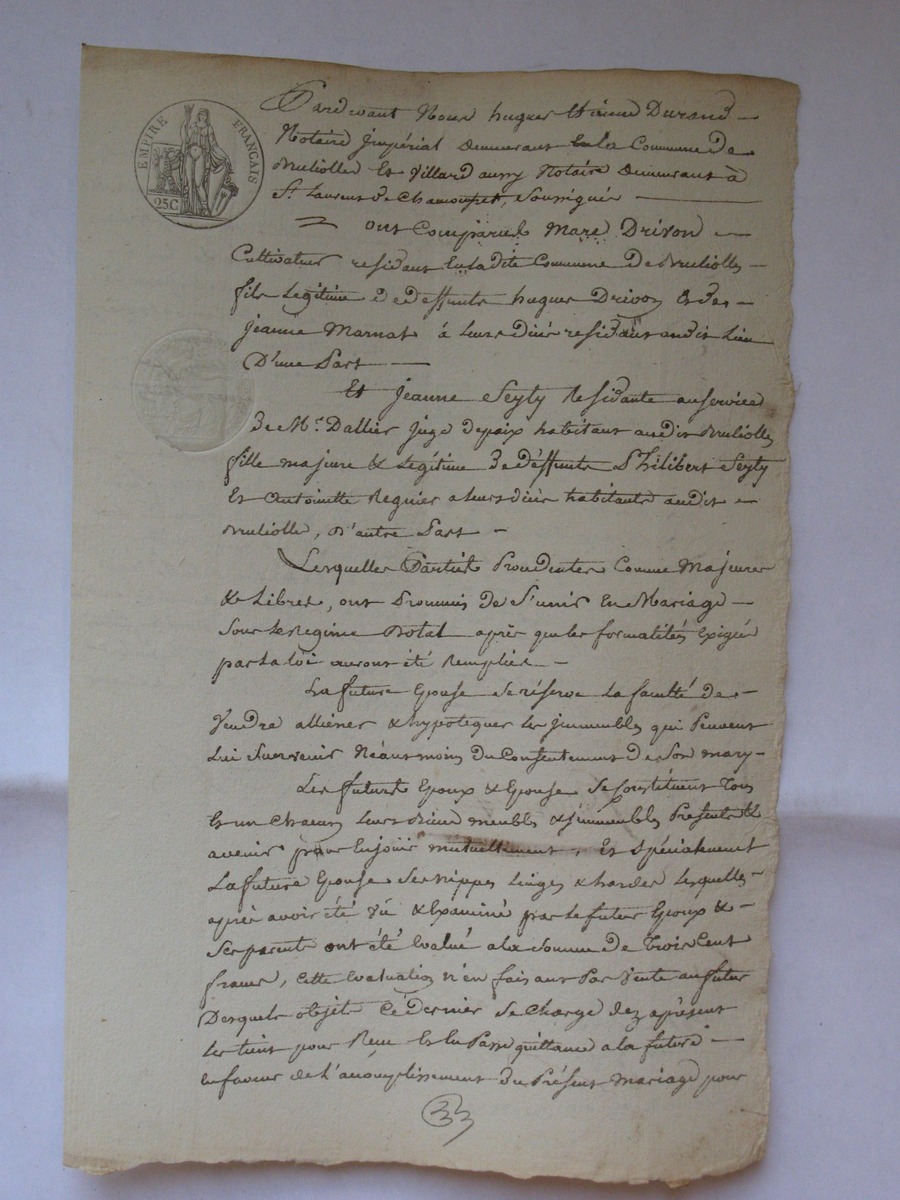 EMPIRE FRANÇAIS
25C
Pardevant Nous hugues Etienne Durand
Notaire Impérial demeurant En la Commune de
Brullolles Et Villard aussy Notaire demeurant à
St Laurent de Chamousset, soussignés
ont Comparus Marc Drivon
Cultivateur residant En ladite Commune De Brullolles
fils Legitime de deffunts hugues Drivon Et de
Jeanne Marnat à Leurs vivés residants audit Lieu
D'une Part
Et Jeanne Seyty Residante au service
de Mr. Dallier juge de paix habitant audit Brullolles
fille majeure & Legitime de deffunts Philibert Seyty
Et Antoinette Regnier a leurs vivés habitants audit
Brullolles, D'autre Part
Lesquelles Parties Procedentes Comme Majeures
& Libres, ont Promis de S'unir En Mariage
Sous Le Regime Dotal après que les formalités Exigées
par la loi auront été Remplies
La future Epouse se réserve la faculté de
Vendre alliéner & hypotequer les immeubles qui Peuvent
Lui Survenir Néaumoins du Consentement de Son mary
Les futurs Epoux & Epouse Se Constituent Tous
Et un Chacun Leurs biens meubles & immeubles Présents &
avenir pour En jouir mutuellement, Et Spécialement
La future Epouse Ses nippes Linges & hardes Lesquelles
après avoir été Vu & Examiné par Le futur Epoux &
Ses parents ont été Evalué a la Somme de Trois Cent
francs, Cette Evaluation n'en faisant Pas Vente au futur
Desquels objets Ce dernier Se Charge dez àprésent
Les tient pour Recu Et En Passe quittance a la future
En faveur de L'accomplissement du Présent mariage pour
33